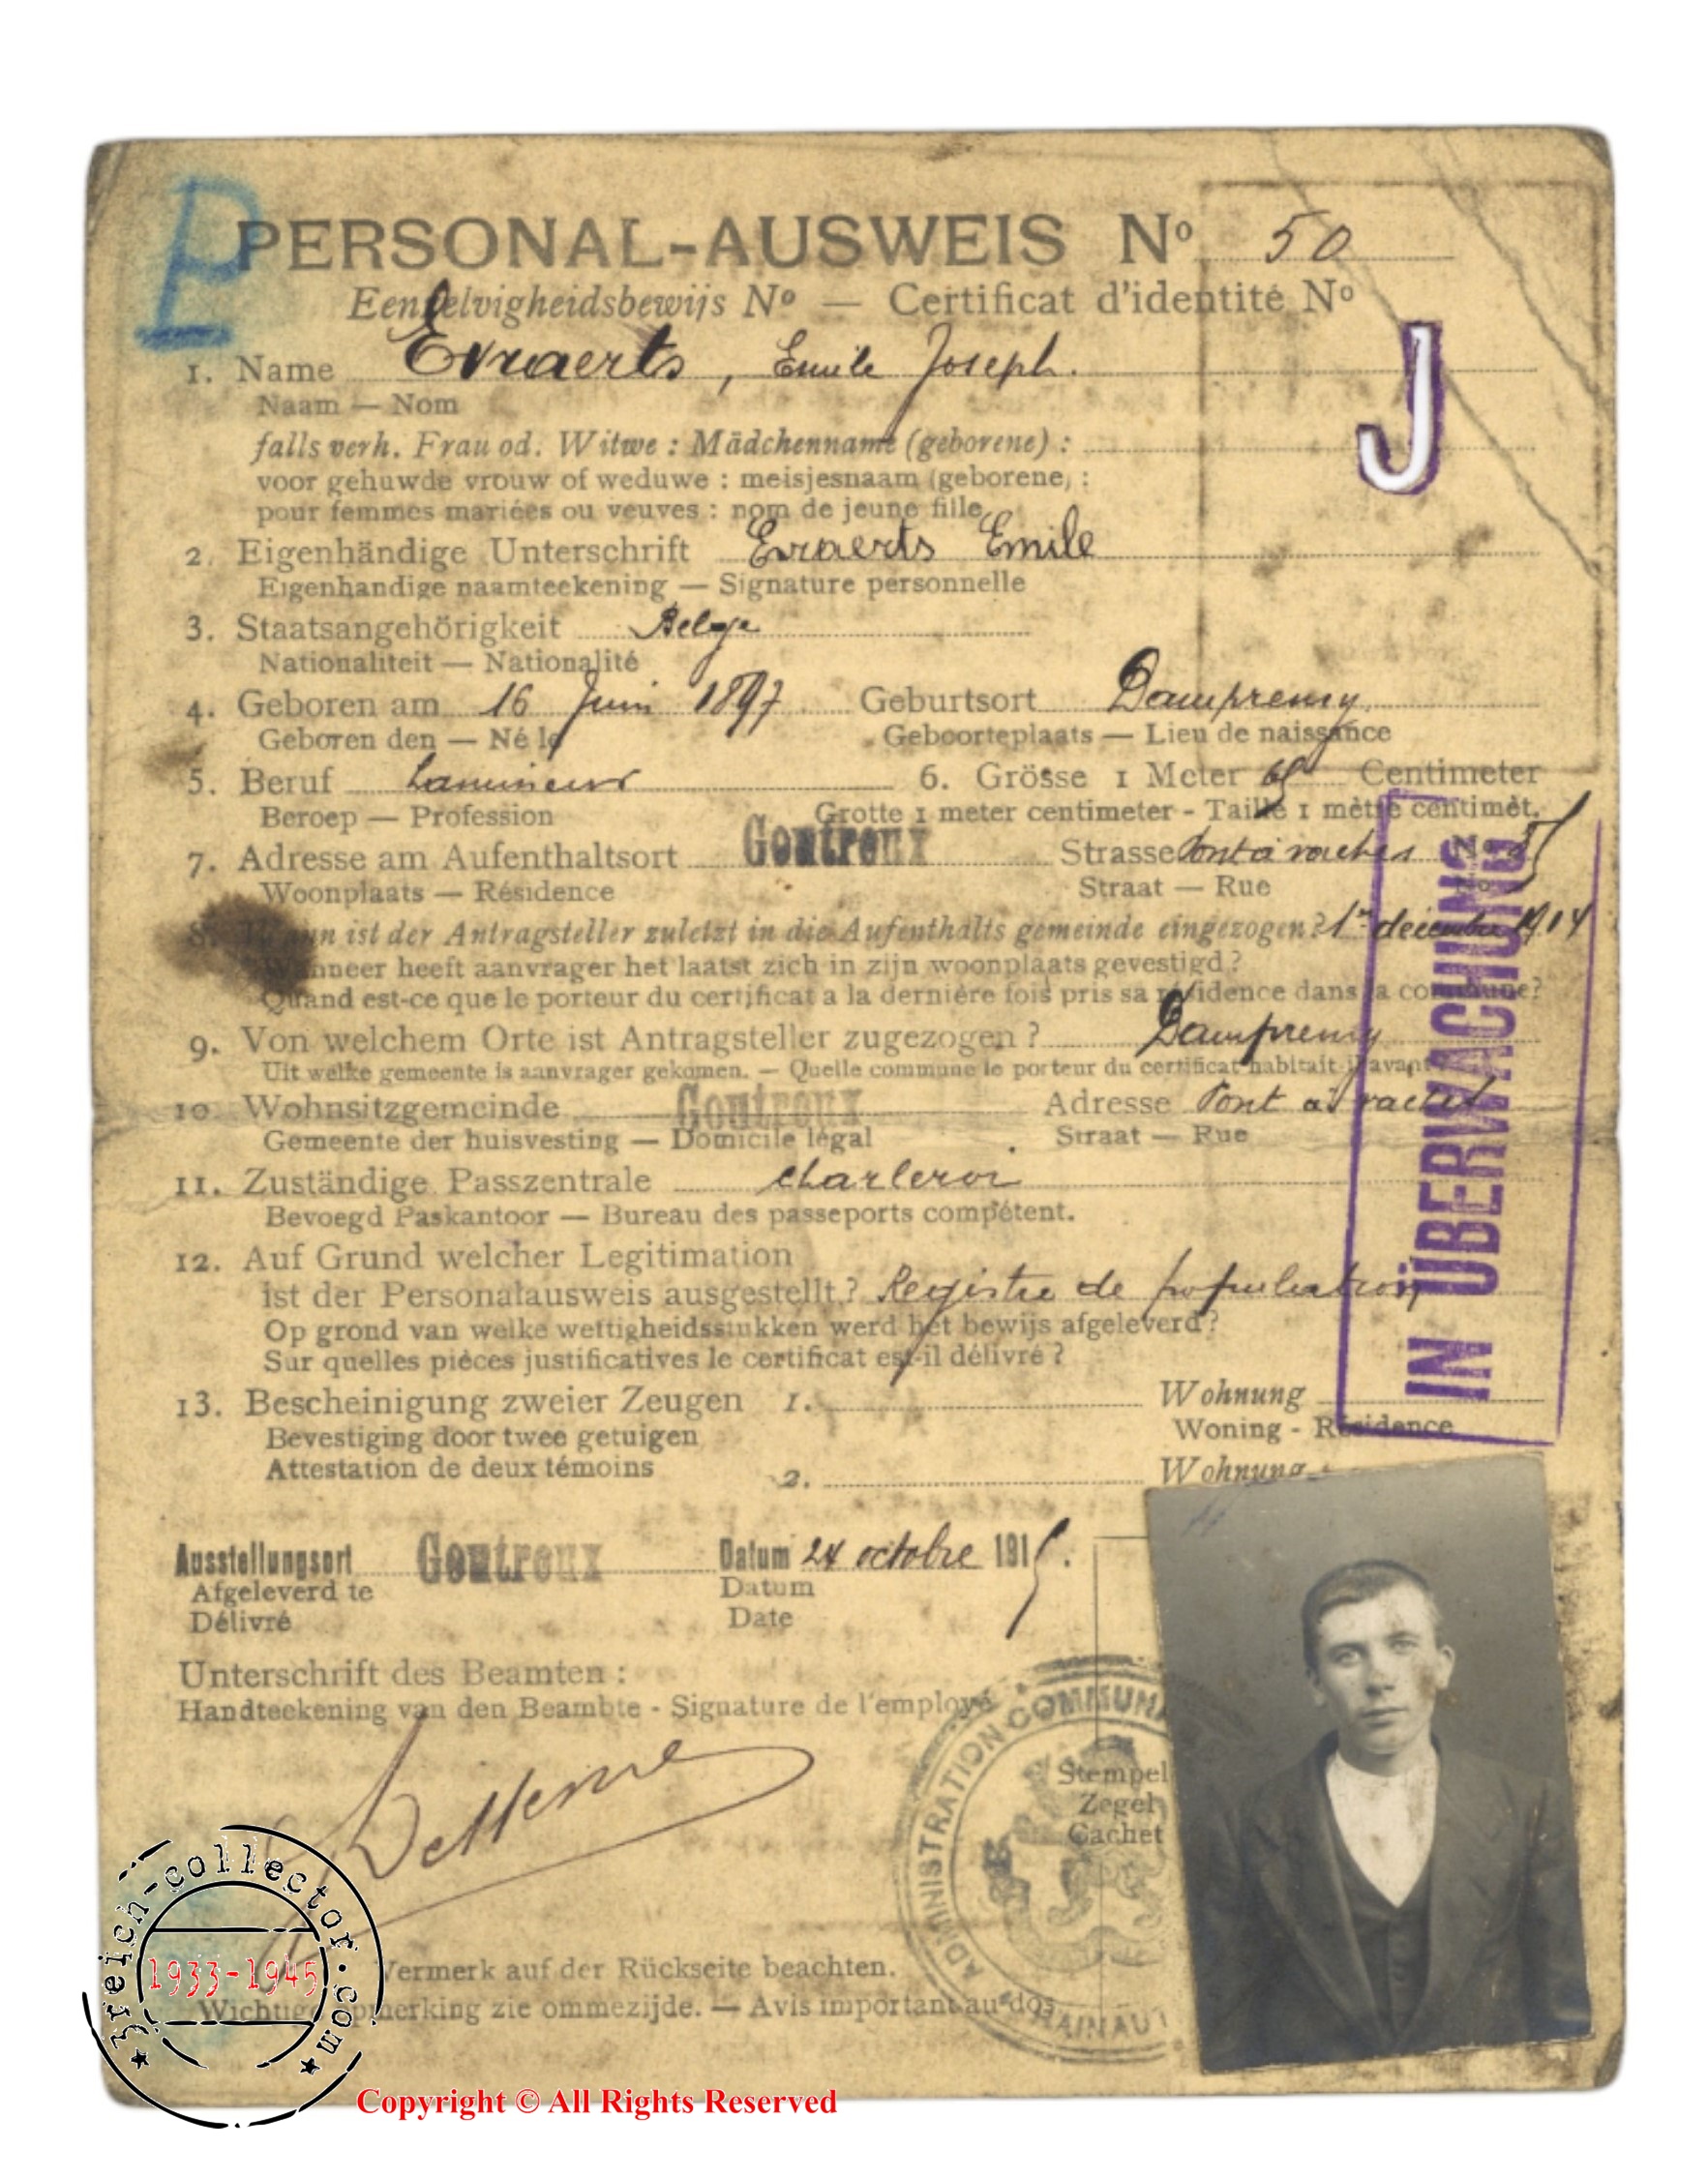 P
PERSONAL-AUSWEIS Nº 50
Eenzelvigheidsbewijs Nº — Certificat d'identité Nº
1. Name Evraerts, Emile Joseph.
Naam — Nom
J
falls verh. Frau od. Witwe : Mädchenname (geborene) :
voor gehuwde vrouw of weduwe : meisjesnaam (geborene) :
pour femmes mariées ou veuves : nom de jeune fille
2. Eigenhändige Unterschrift Evraerts Emile
Eigenhandige naamteekening — Signature personnelle
3. Staatsangehörigkeit Belge
Nationaliteit — Nationalité
4. Geboren am 16 Juin 1897 Geburtsort Dampremy
Geboren den — Né le Geboorteplaats — Lieu de naissance
5. Beruf Lamineur 6. Grösse 1 Meter 65 Centimeter
Beroep — Profession Grotte 1 meter centimeter - Taille 1 mètre centimèt.
7. Adresse am Aufenthaltsort Goutroux Strasse Pont à vaches
Woonplaats — Résidence Straat — Rue
8. Wann ist der Antragsteller zuletzt in die Aufenthalts gemeinde eingezogen? 1er décembre 1914
Wanneer heeft aanvrager het laatst zich in zijn woonplaats gevestigd?
Quand est-ce que le porteur du certificat a la dernière fois pris sa résidence dans la commune?
9. Von welchem Orte ist Antragsteller zugezogen ? Dampremy
Uit welke gemeente is aanvrager gekomen. — Quelle commune le porteur du certificat habitait-il avant
10. Wohnsitzgemeinde Goutroux Adresse Pont à vaches
Gemeente der huisvesting — Domicile légal Straat — Rue
11. Zuständige Passzentrale Charleroi
Bevoegd Paskantoor — Bureau des passeports compétent.
12. Auf Grund welcher Legitimation
ist der Personalausweis ausgestellt ? Registre de population
Op grond van welke wettigheidsstukken werd het bewijs afgeleverd ?
Sur quelles pièces justificatives le certificat est-il délivré ?
IN ÜBERWACHUNG
13. Bescheinigung zweier Zeugen 1. Wohnung
Bevestiging door twee getuigen Woning - Résidence
Attestation de deux témoins 2. Wohnung
Ausstellungsort Goutroux Datum 24 octobre 1915.
Afgeleverd te Datum
Délivré Date
Unterschrift des Beamten :
Handteekening van den Beambte - Signature de l'employé
ADMINISTRATION COMMUNA
HAINAUT
Stempel
Zegel
Cachet
Vermerk auf der Rückseite beachten.
Wichtige opmerking zie ommezijde. — Avis important au dos
3reich-collector.com
1933-1945
Copyright © All Rights Reserved